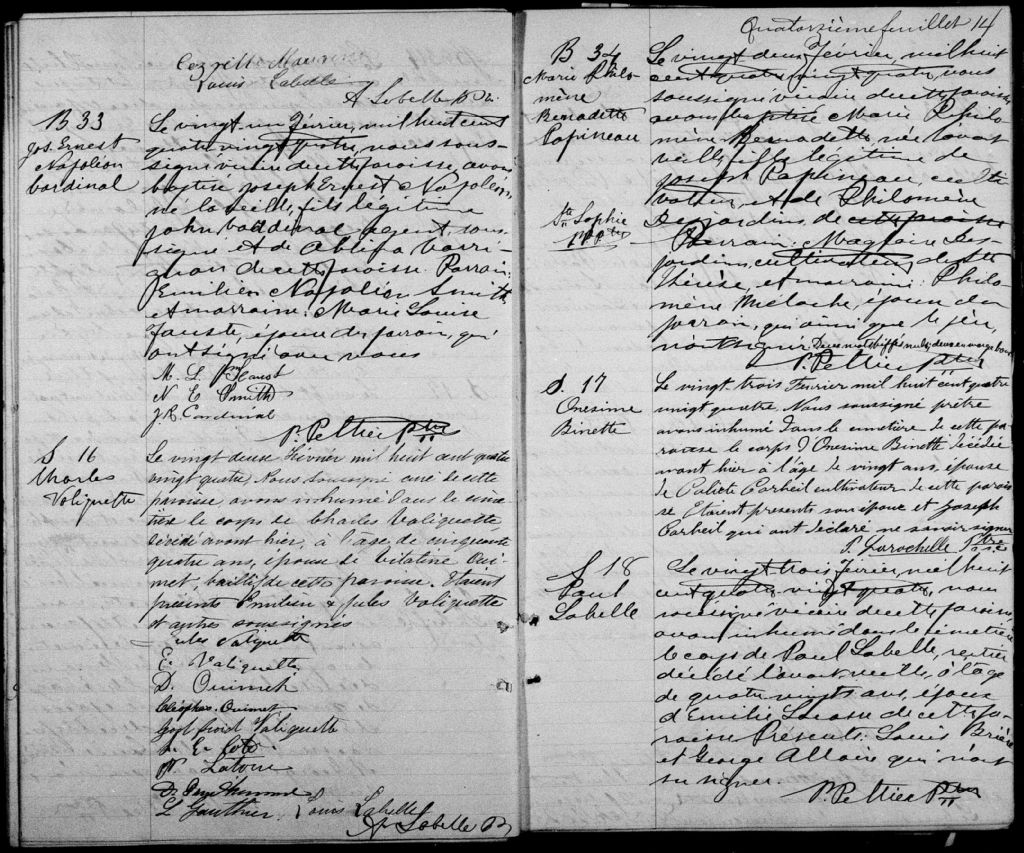 Louis Labelle
A Labelle Ptr.
B 33
Jos. Ernest
Napoléon
Cardinal
Le vingt un Février, mil huit cent
quatre vingt quatre, nous sous-
signé vicaire de cette paroisse, avons
baptisé Joseph Ernest Napoléon,
né la veille, fils légitime
John Cardinal agent, sous-
signé et de
de cette paroisse. Parrain,
Emilien Napoléon Smith
et marraine: Marie Louise
Fauste, épouse du parrain, qui
ont signé avec nous
M. L. Faust
N E Smith
J. B. Cardinal
P. Peltier Ptre
S 16
Charles
Valiquette
Le vingt deux Février mil huit cent quatre
vingt quatre Nous soussigné curé de cette
paroisse avons inhumé dans le cime
tière le corps de Charles Valiquette
décédé avant hier, à l'âge de cinquante
quatre ans, époux de Vitaline Oui-
met, de cette paroisse. Etaient
présents Emilien & Jules Valiquette
et autres soussignés
Jules Valiquette
E. Valiquette
D. Ouimet
Cléophas Ouimet
Valiquette
L. E. Coté
N. Latour
L Gauthier. Louis Labelle
A Labelle Ptr
Quatorzième feuillet 14
B 34
Marie Philo-
mène
Bernadette
Papineau
Ste Sophie
Le vingt deux Février, mil huit
cent quatre vingt quatre, nous
soussigné vicaire de cette paroisse
avons baptisé Marie Philo-
mène Bernadette, née l'avant
veille, fille légitime de
Joseph Papineau, culti-
vateur, et de Philomène
Desjardins de cette paroisse
Parrain: Magloire Des-
jardins, cultivateur, de Ste
Thérèse, et marraine: Philo-
mène Meloche, épouse du
parrain, qui ainsi que le père,
n'ont signé. Deux mots biffés nuls, deux en marge bons
P. Peltier Ptre
S. 17
Onesime
Binette
Le vingt trois Fevrier mil huit cent quatre
vingt quatre. Nous soussigné prêtre
avons inhumé dans le cimetière de cette pa-
roisse le corps d'Onesime Binette décédée
avant hier à l'âge de vingt ans, épouse
de Calixte Carheil cultivateur de cette parois
se Etaient presents son époux et Joseph
Carheil qui ont déclaré ne savoir signer
S. Larochelle Ptre
S 18
Paul
Labelle
Le vingt trois Février, mil huit
cent quatre vingt quatre, nous
soussigné vicaire de cette paroisse,
avons inhumé dans le cimetière
le corps de Paul Labelle, rentier
décédé l'avant veille, à l'âge
de quatre vingts ans, époux
d'Emilie Lacasse de cette pa-
roisse Présents: Louis Brière
et George Allaire qui n'ont
su signer.
P. Peltier Ptre